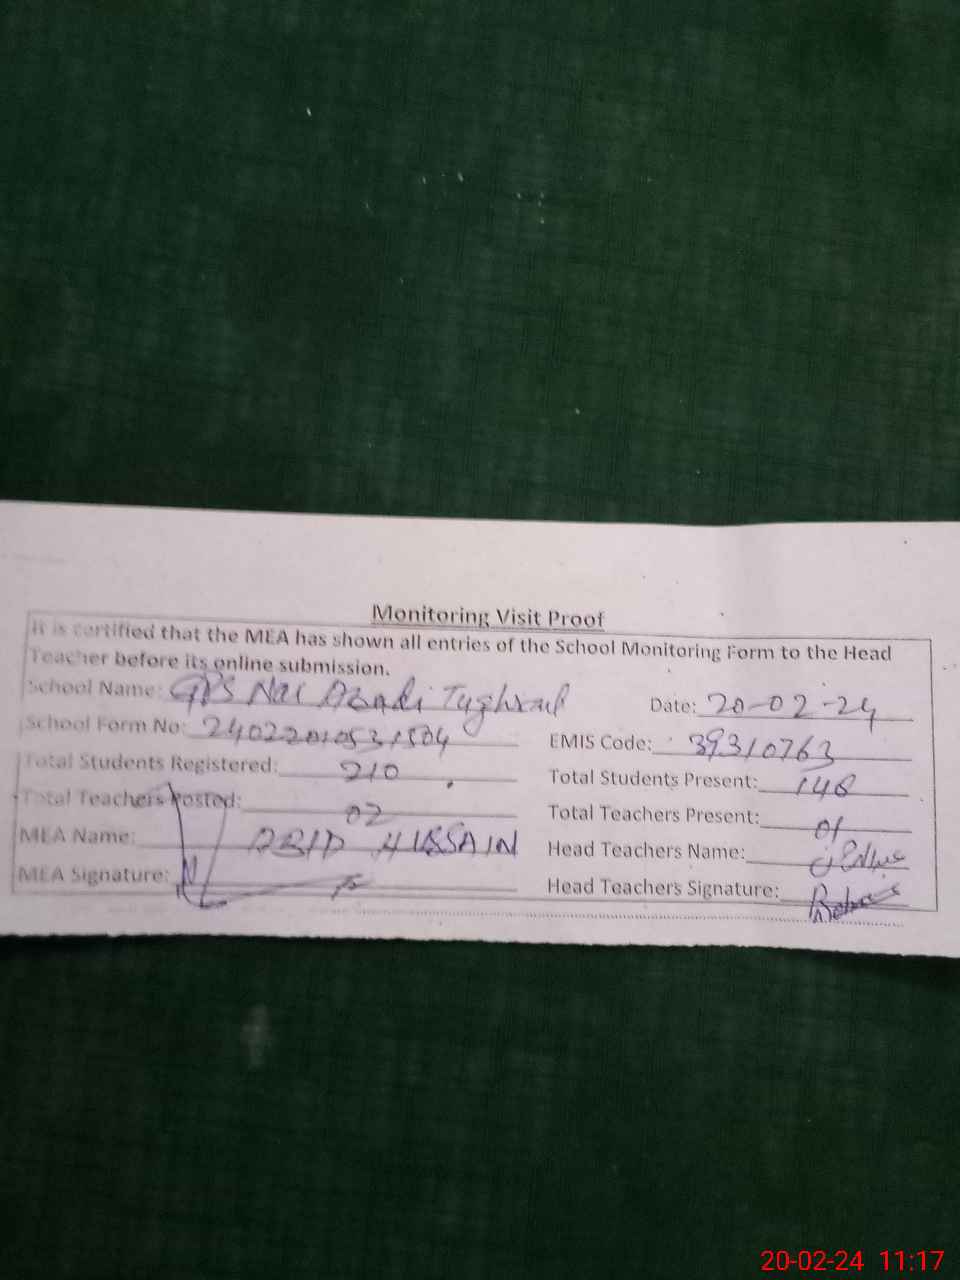 Monitoring Visit Proof
It is certified that the MEA has shown all entries of the School Monitoring Form to the Head
Teacher before its online submission.
School Name: GPS Nai Abadi Tughral Date: 20-02-24
School Form No: 24022010531504 EMIS Code: 39310763
Total Students Registered: 210 Total Students Present: 148
Total Teachers Posted: 02 Total Teachers Present: 01
MEA Name: ABID HUSSAIN Head Teachers Name:
MEA Signature: Head Teachers Signature:
20-02-24 11:17